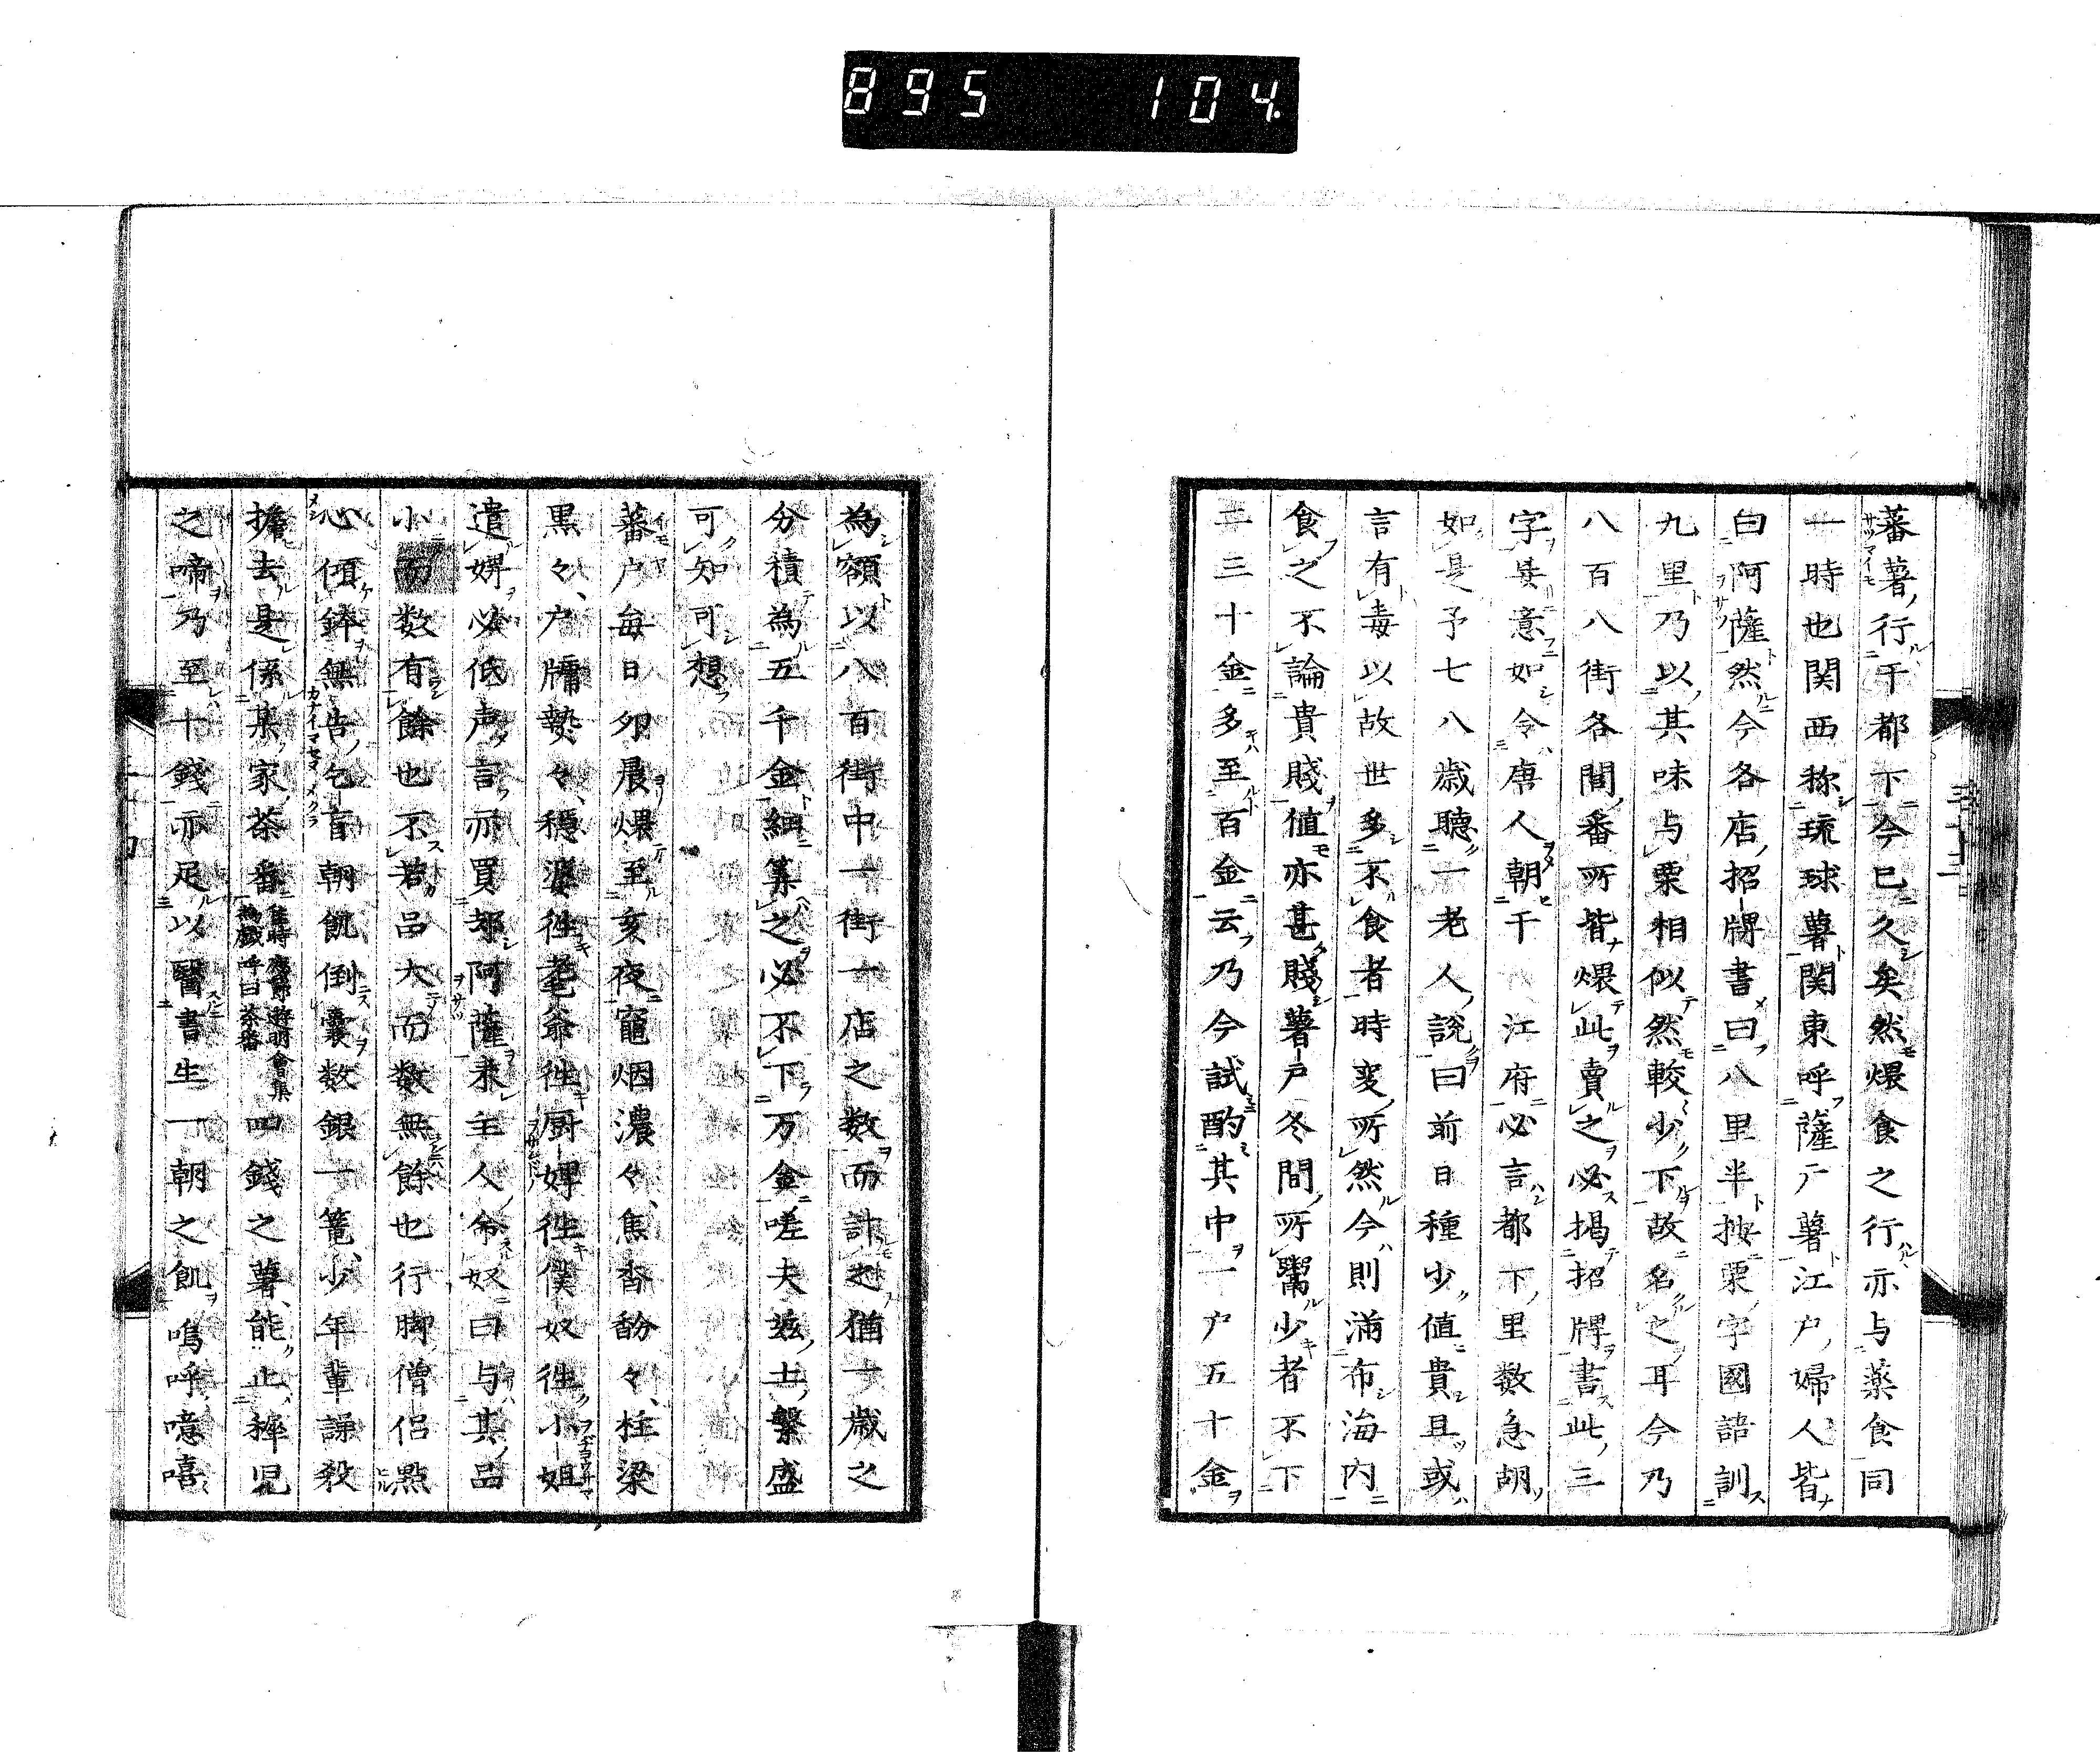 895 104.
蕃薯行于都下今已久矣然煨食之行亦与薬食同
一時也関西称琉球薯関東呼薩广薯江戸婦人皆
曰阿薩然今各店招牌書曰八里半按栗字國語訓
九里乃以其味与栗相似然較少下故名之耳今乃
八百八街各閭番所皆煨此賣之必掲招牌書此三
字其意如令唐人朝于 江府必言都下里数急胡
如是予七八歳聴一老人説曰前日種少値貴且或
言有毒以故世多不食者時変所然今則満布海内
食之不論貴賤値亦甚賤薯戸冬間所鬻少者不下
二三十金多至百金云乃今試酌其中一戸五十金
為額以八百街中一街一店之数而計之猶一歳之
分積為五千金細算之必不下万金嗟夫茲土繫盛
可知可想
蕃戸毎日夘晨煨至亥夜竈烟濃々焦香馚々柱梁
黒々戸牗㷅々穏婆徃老爺徃厨婢徃僕奴徃小姐
遣婢必低声言亦買却阿薩来主人命奴曰与其品
小而数有餘也不若品大而数無餘也行脚僧侶點
心傾鉢無告乞盲朝飢倒嚢数銀一篭少年輩謀殺
擔去是係某家茶番 四錢之薯能止穉児
之啼乃至十錢亦足以醫書生一朝之飢嗚呼噫嘻